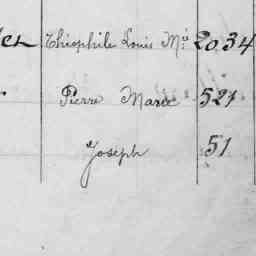 Théophile Louis M^ie 2034
Pierre Marie 521
Joseph 51